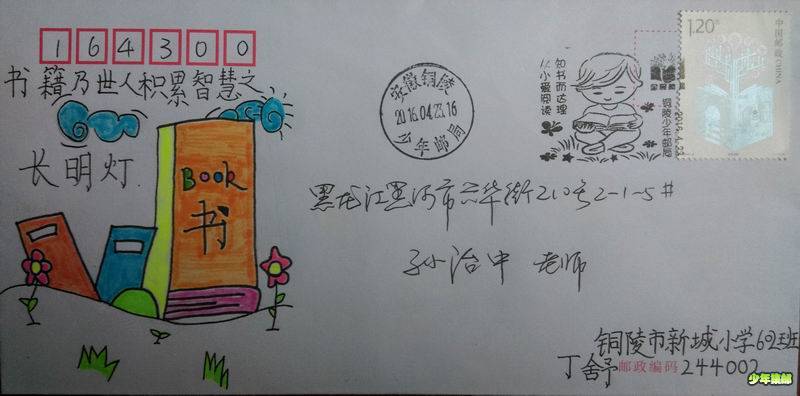 164300
书籍乃世人积累智慧之
长明灯
Book
书
安徽铜陵
2016.04.23.16
少年邮局
知书而达理
从小爱阅读
铜陵少年邮局
1.20元
中国邮政
CHINA
黑龙江黑河市兴华街210号2-1-5#
孙治中 老师
铜陵市新城小学602班
丁舍予 邮政编码 244002
少年集邮